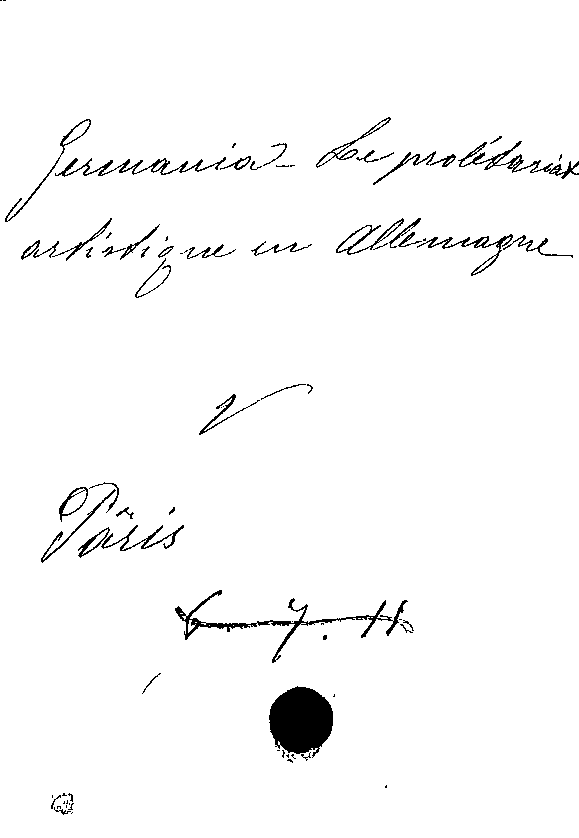 Germania - Le prolétariat
artistique en Allemagne
V
Pâris
6. 7. 11